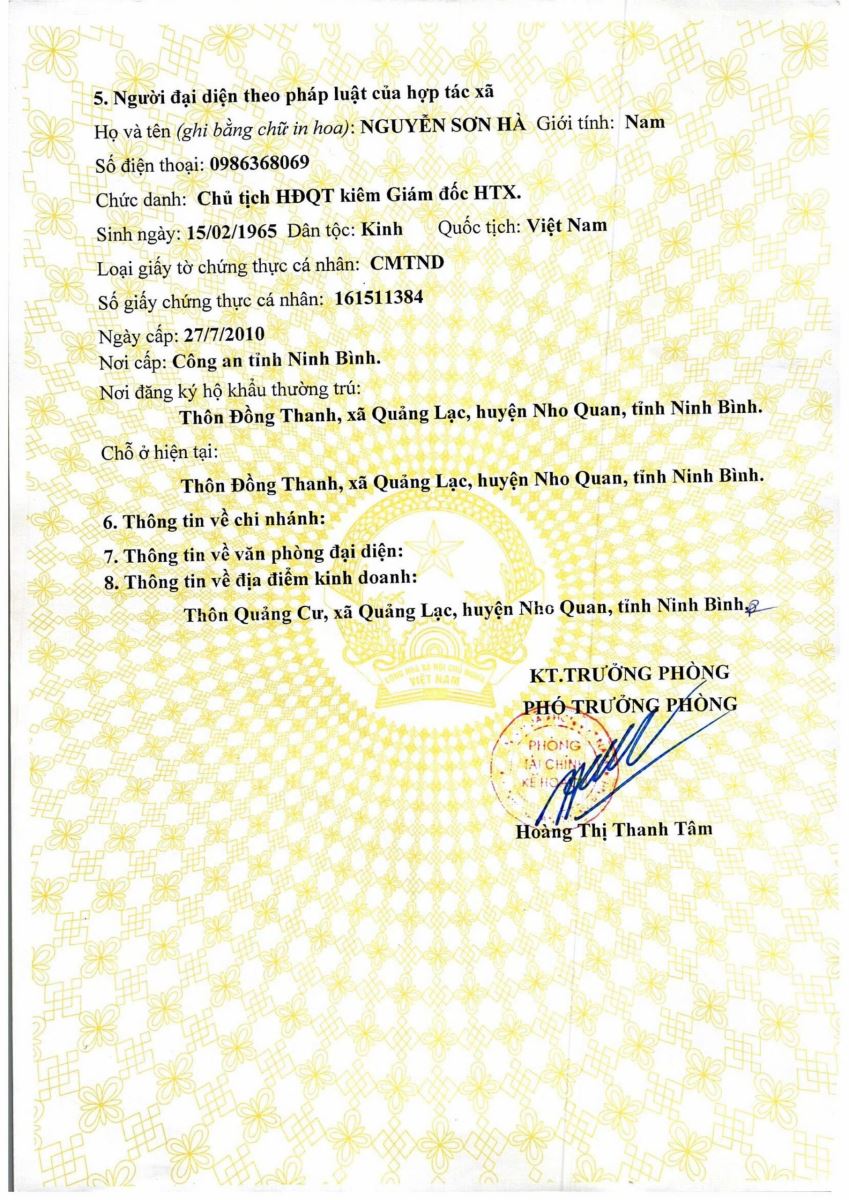 5. Người đại diện theo pháp luật của hợp tác xã
Họ và tên (ghi bằng chữ in hoa): NGUYỄN SƠN HÀ Giới tính: Nam
Số điện thoại: 0986368069
Chức danh: Chủ tịch HĐQT kiêm Giám đốc HTX.
Sinh ngày: 15/02/1965 Dân tộc: Kinh Quốc tịch: Việt Nam
Loại giấy tờ chứng thực cá nhân: CMTND
Số giấy chứng thực cá nhân: 161511384
Ngày cấp: 27/7/2010
Nơi cấp: Công an tỉnh Ninh Bình.
Nơi đăng ký hộ khẩu thường trú:
Thôn Đồng Thanh, xã Quảng Lạc, huyện Nho Quan, tỉnh Ninh Bình.
Chỗ ở hiện tại:
Thôn Đồng Thanh, xã Quảng Lạc, huyện Nho Quan, tỉnh Ninh Bình.
6. Thông tin về chi nhánh:
7. Thông tin về văn phòng đại diện:
8. Thông tin về địa điểm kinh doanh:
Thôn Quảng Cư, xã Quảng Lạc, huyện Nho Quan, tỉnh Ninh Bình.
CỘNG HÒA XÃ HỘI CHỦ NGHĨA
VIỆT NAM
KT.TRƯỞNG PHÒNG
PHÓ TRƯỞNG PHÒNG
PHÒNG
TÀI CHÍNH
KẾ HOẠCH
Hoàng Thị Thanh Tâm